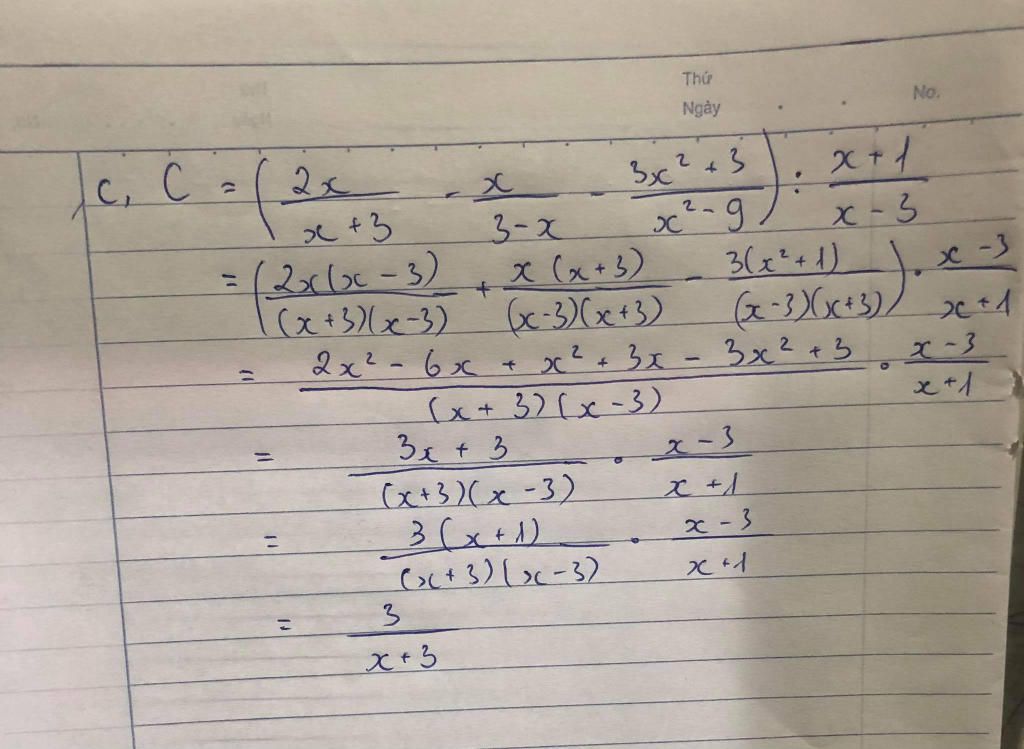 Thứ
Ngày . . No.
c, C = (2x/(x+3) - x/(3-x) - (3x² + 3)/(x² - 9)) : (x+1)/(x-3)
= (2x(x-3)/((x+3)(x-3)) + x(x+3)/((x-3)(x+3)) - 3(x²+1)/((x-3)(x+3))) . (x-3)/(x+1)
= (2x² - 6x + x² + 3x - 3x² + 3)/((x+3)(x-3)) . (x-3)/(x+1)
= (3x + 3)/((x+3)(x-3)) . (x-3)/(x+1)
= 3(x+1)/((x+3)(x-3)) . (x-3)/(x+1)
= 3/(x+3)